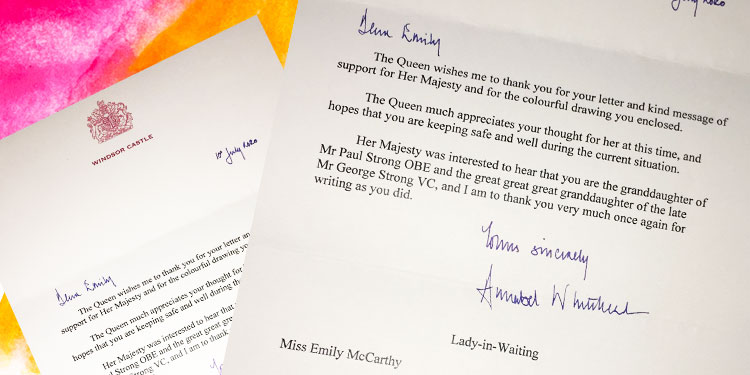 WINDSOR CASTLE
July 2020
Dear Emily
The Queen wishes me to thank you for your letter and
support for Her Majesty and for the colourful drawing yo
The Queen much appreciates your thought for
hopes that you are keeping safe and well during the
Her Majesty was interested to hear
Paul Strong OBE and the great gre
Strong VC, and I am to thank
as you did.
July 2020
Dear Emily
The Queen wishes me to thank you for your letter and kind message of
support for Her Majesty and for the colourful drawing you enclosed.
The Queen much appreciates your thought for her at this time, and
hopes that you are keeping safe and well during the current situation.
Her Majesty was interested to hear that you are the granddaughter of
Mr Paul Strong OBE and the great great great granddaughter of the late
Mr George Strong VC, and I am to thank you very much once again for
writing as you did.
Yours sincerely
Annabel Whitehead
Lady-in-Waiting
Miss Emily McCarthy